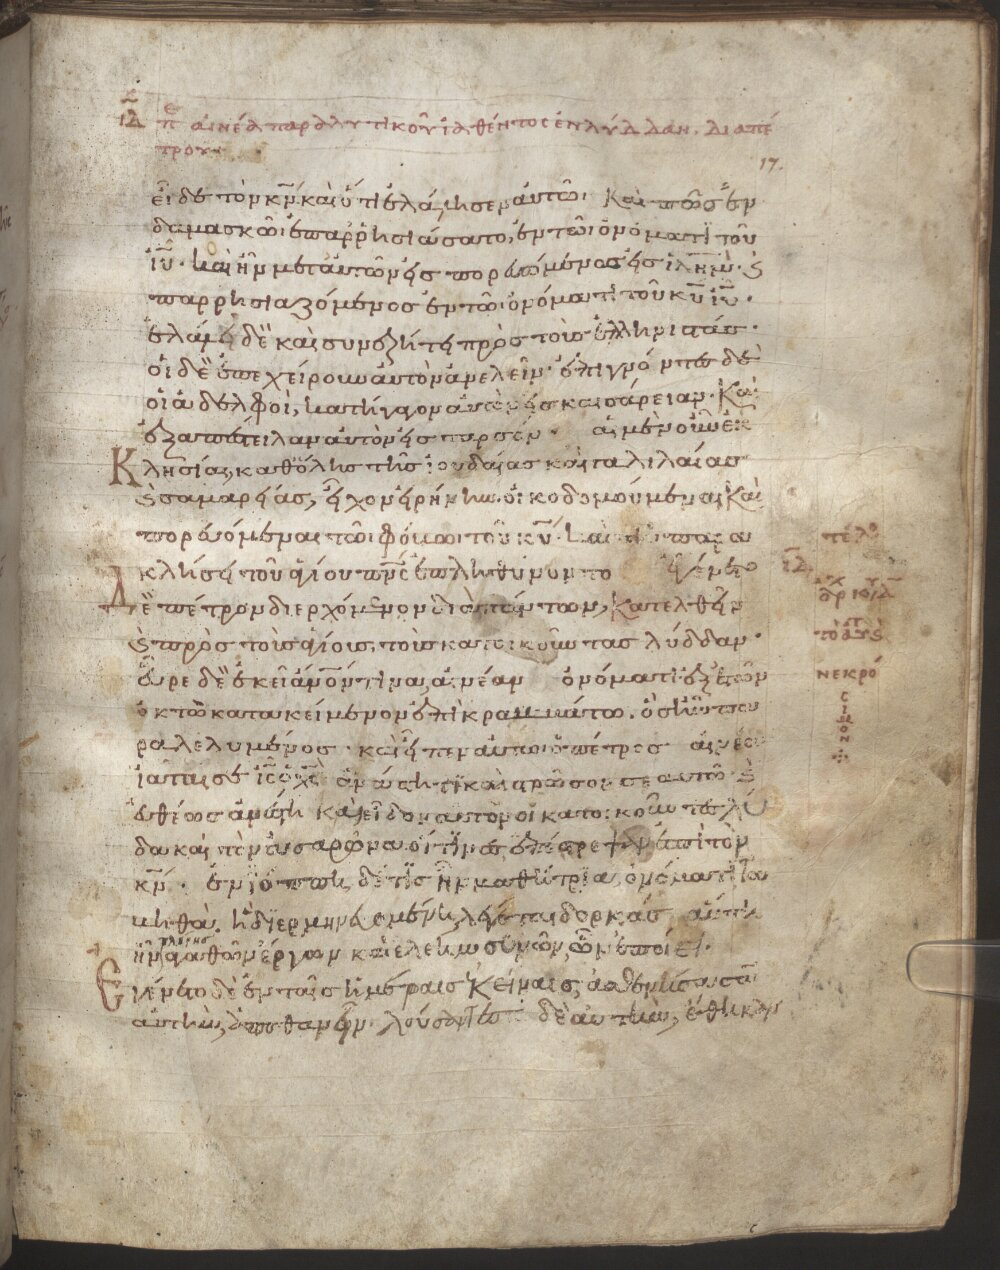 ΙΔ π αινέα παραλυτικοῦ ἰαθέντος ἐν λύδδαν. διαπέ
τρου
17.
εἶδε τὸν κν καὶ ὅτι ἐλάλησεν αὐτῶ· Καὶ πῶς ἐν
δαμασκῶ ἐπαρρησιάσατο, ἐν τῶ ὀνόματι τοῦ
ιυ. καὶ ἦν μεταυτῶν εἰσπορευόμενος εἰς ιλημ. ϛ
παρρησιαζόμενος ἐν τῶ ὀνόματι τοῦ κυ ιυ.
ἐλάλει δὲ καὶ συνεζήτη πρὸς τοὺς ἑλληνιστάς.
οἱ δὲ ἐπεχείρουν αὐτὸν ἀνελεῖν. ἐπιγνόντες δὲ
οἱ ἀδελφοὶ, κατήγαγον αὐτὸν εἰς καισάρειαν. Καὶ
ἐξαπέστειλαν αὐτὸν εἰς ταρσόν. αἱ μὲν οὖν ἐκ
Κλησίαι, καθόλης τῆς ἰουδαίας καὶ γαλιλαίας
ϛ σαμαρείας, εἶχον εἰρήνην. οἰκοδομούμεναι Καὶ
πορευόμεναι τῶ φόβω τοῦ κυ. καὶ τῆ παρα
κλήσει τοῦ ἁγίου πνς ἐπληθύνοντο ἐγένετο
Δὲ πέτρον διερχόμενον διὰ πάντων, Κατελθεῖν
ϛ πρὸς τοὺς ἁγίους, τοὺς κατοικοῦντας λύδδαν.
εὗρε δὲ ἐκεῖ ἄνον τινα, αἰνέαν ὀνόματι ἐξ ἐτῶν
ὀκτὼ κατακείμενον ἐπὶ κραββάτω. ὃς ἦν πα
ραλελυμένος. καὶ εἶπεν αὐτῶ ὁ πέτρος αἰνέα
ἰᾶταί σε ις ὁ χς ἀνάστηθι καὶ στρῶσον σεαυτῶ. ϛ
εὐθέως ἀνέστη καὶ εἶδον αὐτὸν οἱ κατοικοῦντες λύ
δαν καὶ τὸν ἀσσαρῶνα, οἵτινες ἐπέστρεψαν ἐπὶ τὸν
κν. ἐν ἰόππη δέ τις ἦν μαθήτρια, ὀνόματι τα
μιθὰ. ἡ διερμηνευομένη, λέγεται δορκάς αὕτη
πλήρης
ἦν ἀγαθῶν ἔργων καὶ ἐλεημοσυνῶν, ὧν ἐποίει.
Ἐγένετο δὲ ἐν ταῖς ἡμέραις ἐκείναις, ἀσθενήσασαν
αὐτὴν, ἀποθανεῖν. λούσαντες δὲ αὐτὴν, ἔθηκαν
τέλος
ΙΔ
νεκρό
σιμον